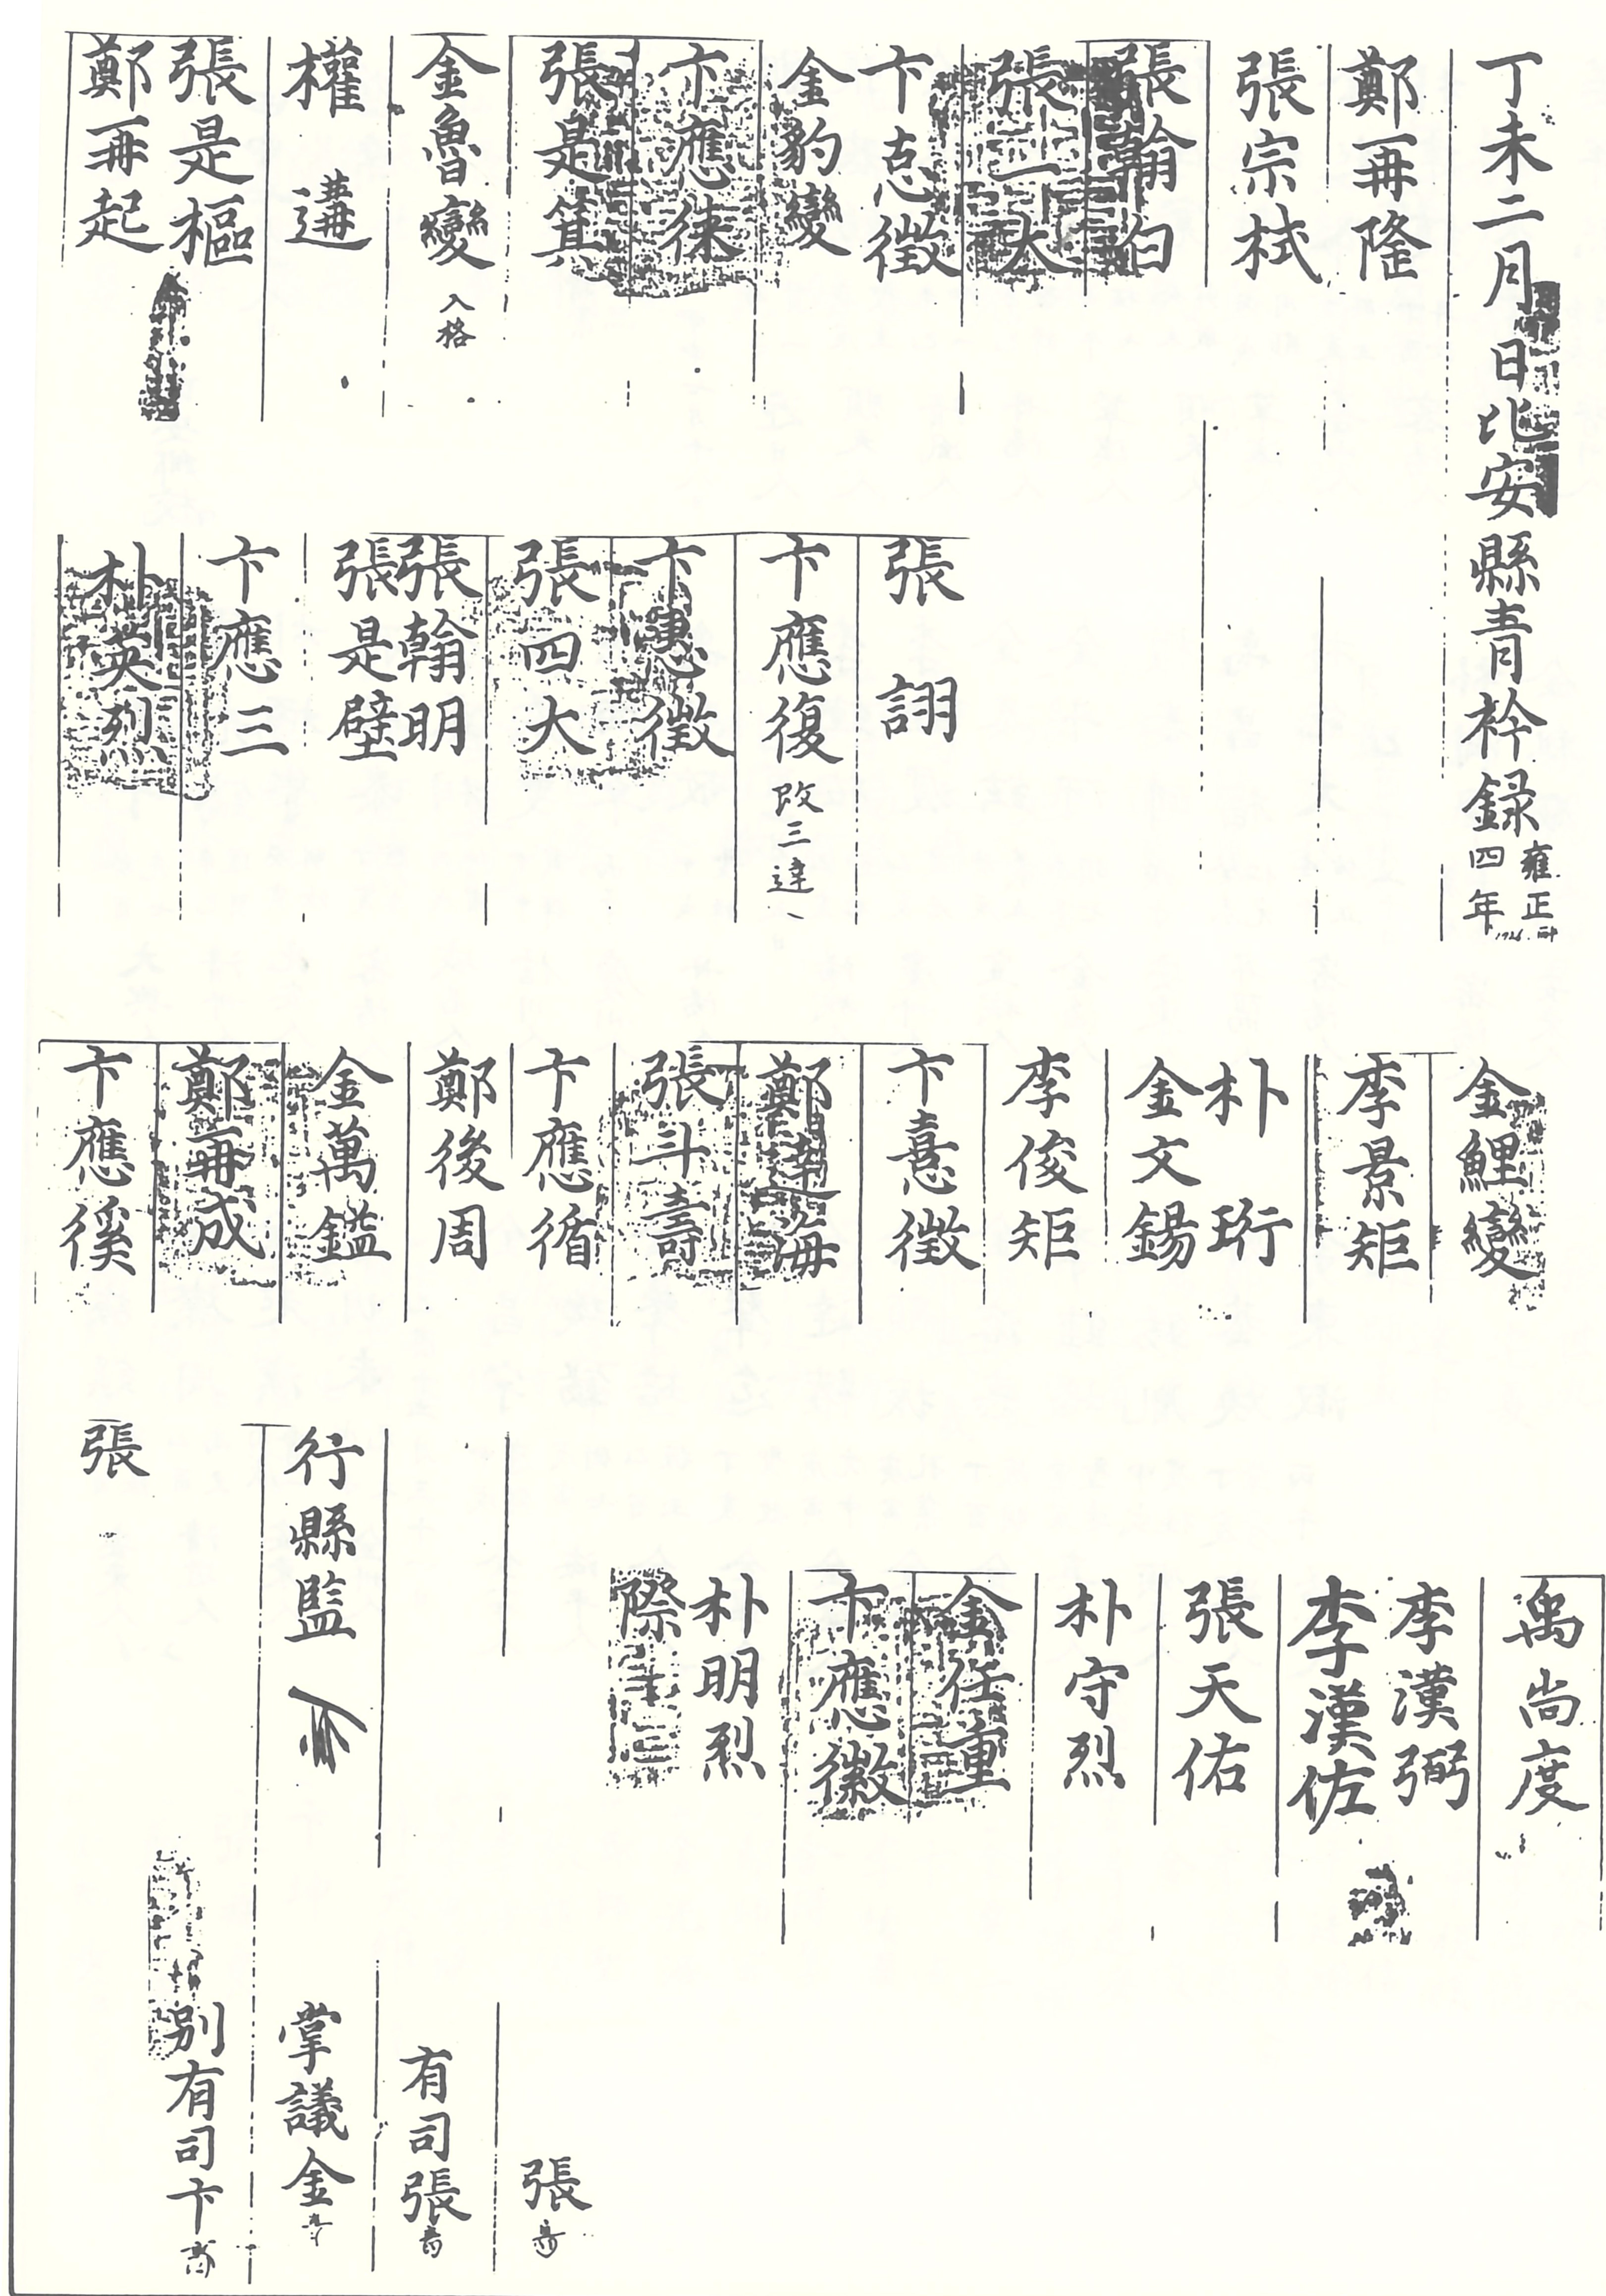 丁未二月 日比安縣青衿録 雍正四年
鄭再隆
張宗栻
張翰白
張一大
卞志徵
金豹變
卞應徠
張是箕
金魯變 入格
權 遘
張是樞
鄭再起
張 詡
卞應復 改三達
卞憓徵
張四大
張翰明
張是璧
卞應三
朴英烈
金鯉變
李景矩
朴 珩
金文錫
李俊矩
卞憙徵
鄭達海
張斗壽
卞應循
鄭後周
金萬鎰
鄭再成
卞應徯
禹尚度
李漢弼
李漢佐
張天佑
朴守烈
金任重
卞應徽
朴明烈
際
張
有司張
行縣監
掌議金
張
別有司卞